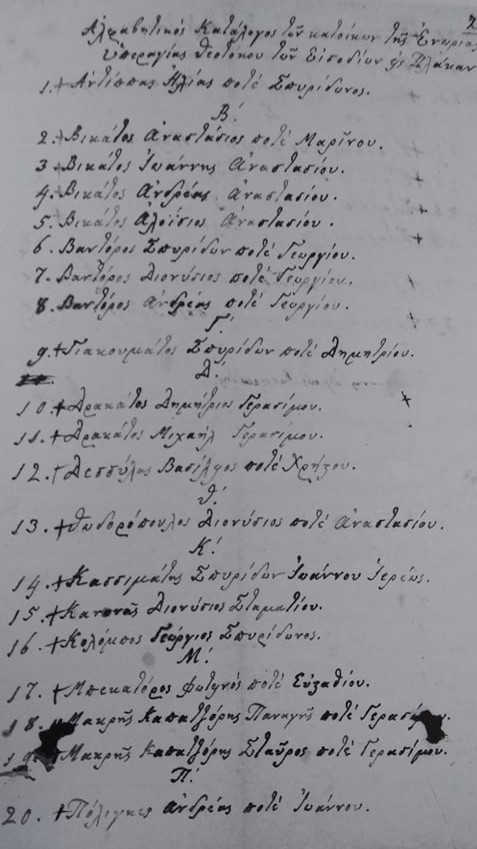 Αλφαβητικός Κατάλογος τῶν κατοίκων τῆς Ἐνορίας
Ὑπεραγίας Θεοτόκου τῶν Εἰσοδίων
1. + Αντίππας Ηλίας ποτέ Σπυρίδωνος.
Β΄.
2. + Βικάτος Αναστάσιος ποτέ Μαρίνου.
3 + Βικάτος Ιωάννης Αναστασίου.
4. + Βικάτος Ανδρέας Αναστασίου.
5. + Βικάτος Αλοΐσιος Αναστασίου.
6. Βαντόρος Σπυρίδων ποτέ Γεωργίου.
7. Βαντόρος Διονύσιος ποτέ Γεωργίου.
8. Βαντόρος Ανδρέας ποτέ Γεωργίου.
Γ΄.
9. + Γιακουμάτος Σπυρίδων ποτέ Δημητρίου.
Δ΄.
10. + Δρακάτος Δημήτριος Γερασίμου.
11. + Δρακάτος Μιχαήλ Γερασίμου.
12. + Δεσσύλας ποτέ
Θ΄.
13. + Θωδορόπουλος Διονύσιος ποτέ Αναστασίου.
Κ΄.
14. + Κασσιμάτης Σπυρίδων Ιωάννου Ιερέως.
15. + Διονύσιος Σταματίου.
16. + Κολόμπος Γεώργιος Σπυρίδωνος.
Μ΄.
17. + Μπεκατόρος Φωτινός ποτέ Εὐσταθίου.
18. Μακρῆς Καπατζόρης Παναγῆς ποτέ Γερασίμου.
19. Μακρῆς Καπατζόρης Σταῦρος ποτέ Γερασίμου.
Π΄.
20. + Ανδρέας ποτέ Ιωάννου.